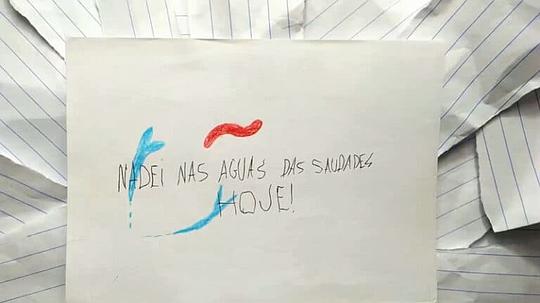 NADEI NAS AGUAS DAS SAUDADES
HOJE!